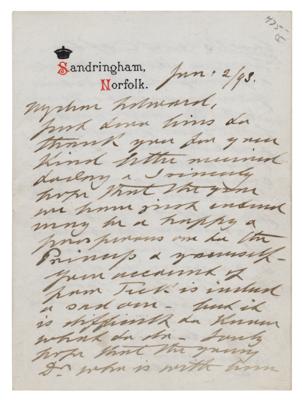 475-
Sandringham,
Norfolk.
Jan: 2/93.
My dear Edward,
Just two lines to
thank you for your
kind letter received
to day & I sincerely
hope that the year
we have just entered
may be a happy &
prosperous one to the
Princess & yourself –
Your account of
poor Teck is indeed
a sad one – but it
is difficult to know
what to do – I only
hope that the young
Dr who is with him